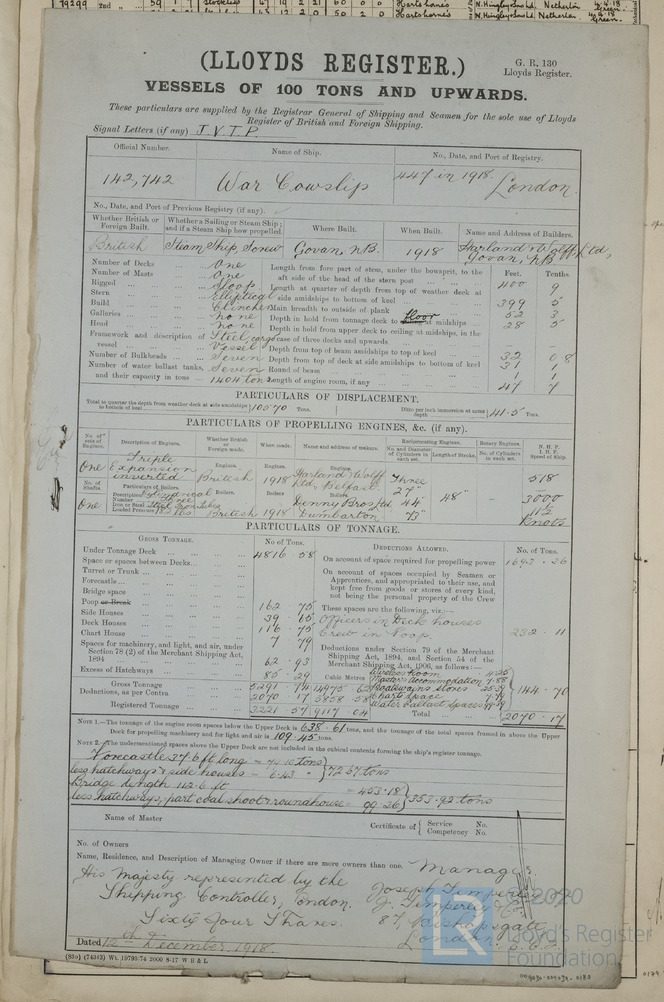 79299 2nd
Hartshornes W. Hingley & Sons Ld, Netherton
Green.
(LLOYDS REGISTER.)
G. R. 130
Lloyds Register.
VESSELS OF 100 TONS AND UPWARDS.
These particulars are supplied by the Registrar General of Shipping and Seamen for the sole use of Lloyds
Register of British and Foreign Shipping.
Signal Letters (if any) J.V.T.P.
Official Number. Name of Ship. No., Date, and Port of Registry.
142,742 War Cowslip 447 in 1918. London.
No., Date, and Port of Previous Registry (if any).
Whether British or Foreign Built. Whether a Sailing or Steam Ship; and if a Steam Ship how propelled. Where Built. When Built. Name and Address of Builders.
British Steam Ship, Screw Govan, N.B. 1918 Harland & Wolff, Ltd, Govan, N.B.
Number of Decks One
Number of Masts One
Rigged Sloop
Stern Elliptical
Build Clincher
Galleries None
Head None
Framework and description of vessel Steel cargo Vessel
Number of Bulkheads Seven
Number of water ballast tanks, Seven
and their capacity in tons 1404 tons
Length from fore part of stem, under the bowsprit, to the aft side of the head of the stern post Feet. Tenths. 400 9
Length at quarter of depth from top of weather deck at side amidships to bottom of keel 399 5
Main breadth to outside of plank 52 3
Depth in hold from tonnage deck to floor at midships 28 5
Depth in hold from upper deck to ceiling at midships, in the case of three decks and upwards
Depth from top of beam amidships to top of keel 32 08
Depth from top of deck at side amidships to bottom of keel 31 1
Round of beam 1 1
Length of engine room, if any 47 7
PARTICULARS OF DISPLACEMENT.
Total to quarter the depth from weather deck at side amidships to bottom of keel 10070 Tons. Ditto per inch immersion at same depth 41.5 Tons.
PARTICULARS OF PROPELLING ENGINES, &c. (if any).
No. of sets of Engines. Description of Engines. Whether British or Foreign made. When made. Name and address of makers. Reciprocating Engines. No. and Diameter of Cylinders in each set. Length of Stroke. Rotary Engines. No. of Cylinders in each set. N. H. P. I. H. P. Speed of Ship.
One Triple Expansion inverted Engines. British Engines. 1918 Engines. Harland & Wolff Ltd, Belfast Three 27" 44" 73" 48" 518
No. of Shafts. Particulars of Boilers. 3000
One Description Cylindrical Number Three Iron or Steel Steel Loaded Pressure Boilers. British Boilers 1918 Boilers. Denny Bros Ld Dumbarton 11½ Knots
PARTICULARS OF TONNAGE.
GROSS TONNAGE. No. of Tons. DEDUCTIONS ALLOWED. No. of Tons.
Under Tonnage Deck 4816.58
Space or spaces between Decks
Turret or Trunk
Forecastle
Bridge space
Poop or Break 162.75
Side Houses 39.65
Deck Houses 116.75
Chart House 7.79
Spaces for machinery, and light, and air, under Section 78 (2) of the Merchant Shipping Act, 1894 62.93
Excess of Hatchways 85.29
Gross Tonnage 5291.74 14975.62
Deductions, as per Contra 2070.17 5858.58
Registered Tonnage 3221.57 9117.04
Cubic Metres
On account of space required for propelling power 1693.36
On account of spaces occupied by Seamen or Apprentices, and appropriated to their use, and kept free from goods or stores of every kind, not being the personal property of the Crew
These spaces are the following, viz.:—
Officers in Deck houses
Crew in Poop. 232.11
Deductions under Section 79 of the Merchant Shipping Act, 1894, and Section 54 of the Merchant Shipping Act, 1906, as follows:—
Master's accommodation 7.88
Boatswains stores 25.39
Chart space 7.79
Water ballast spaces
144.70
Total 2070.17
NOTE 1.—The tonnage of the engine room spaces below the Upper Deck is 638.61 tons, and the tonnage of the total spaces framed in above the Upper
Deck for propelling machinery and for light and air is 109.45 tons.
NOTE 2.—The undermentioned spaces above the Upper Deck are not included in the cubical contents forming the ship's register tonnage.
Forecastle 37.6 ft long = 79.10 tons
less hatchways & side houses = 6.43 } 72.67 tons
Bridge length 112.6 ft = 453.18
less hatchways, part coal shoot & roundhouse = 99.26 } 353.92 tons
Name of Master Certificate of { Service No. Competency No.
No. of Owners
Name, Residence, and Description of Managing Owner if there are more owners than one.
His Majesty represented by the
Shipping Controller, London.
Sixty four Shares.
Manager
Joseph Temperley
J. Temperley & Co.
87, Bishopsgate
London E.C.2
Dated 12th December 1918
(83o) (74313) Wt. 19793/74 2000 8-17 W B & L
© 2020
Lloyd's Register
Foundation